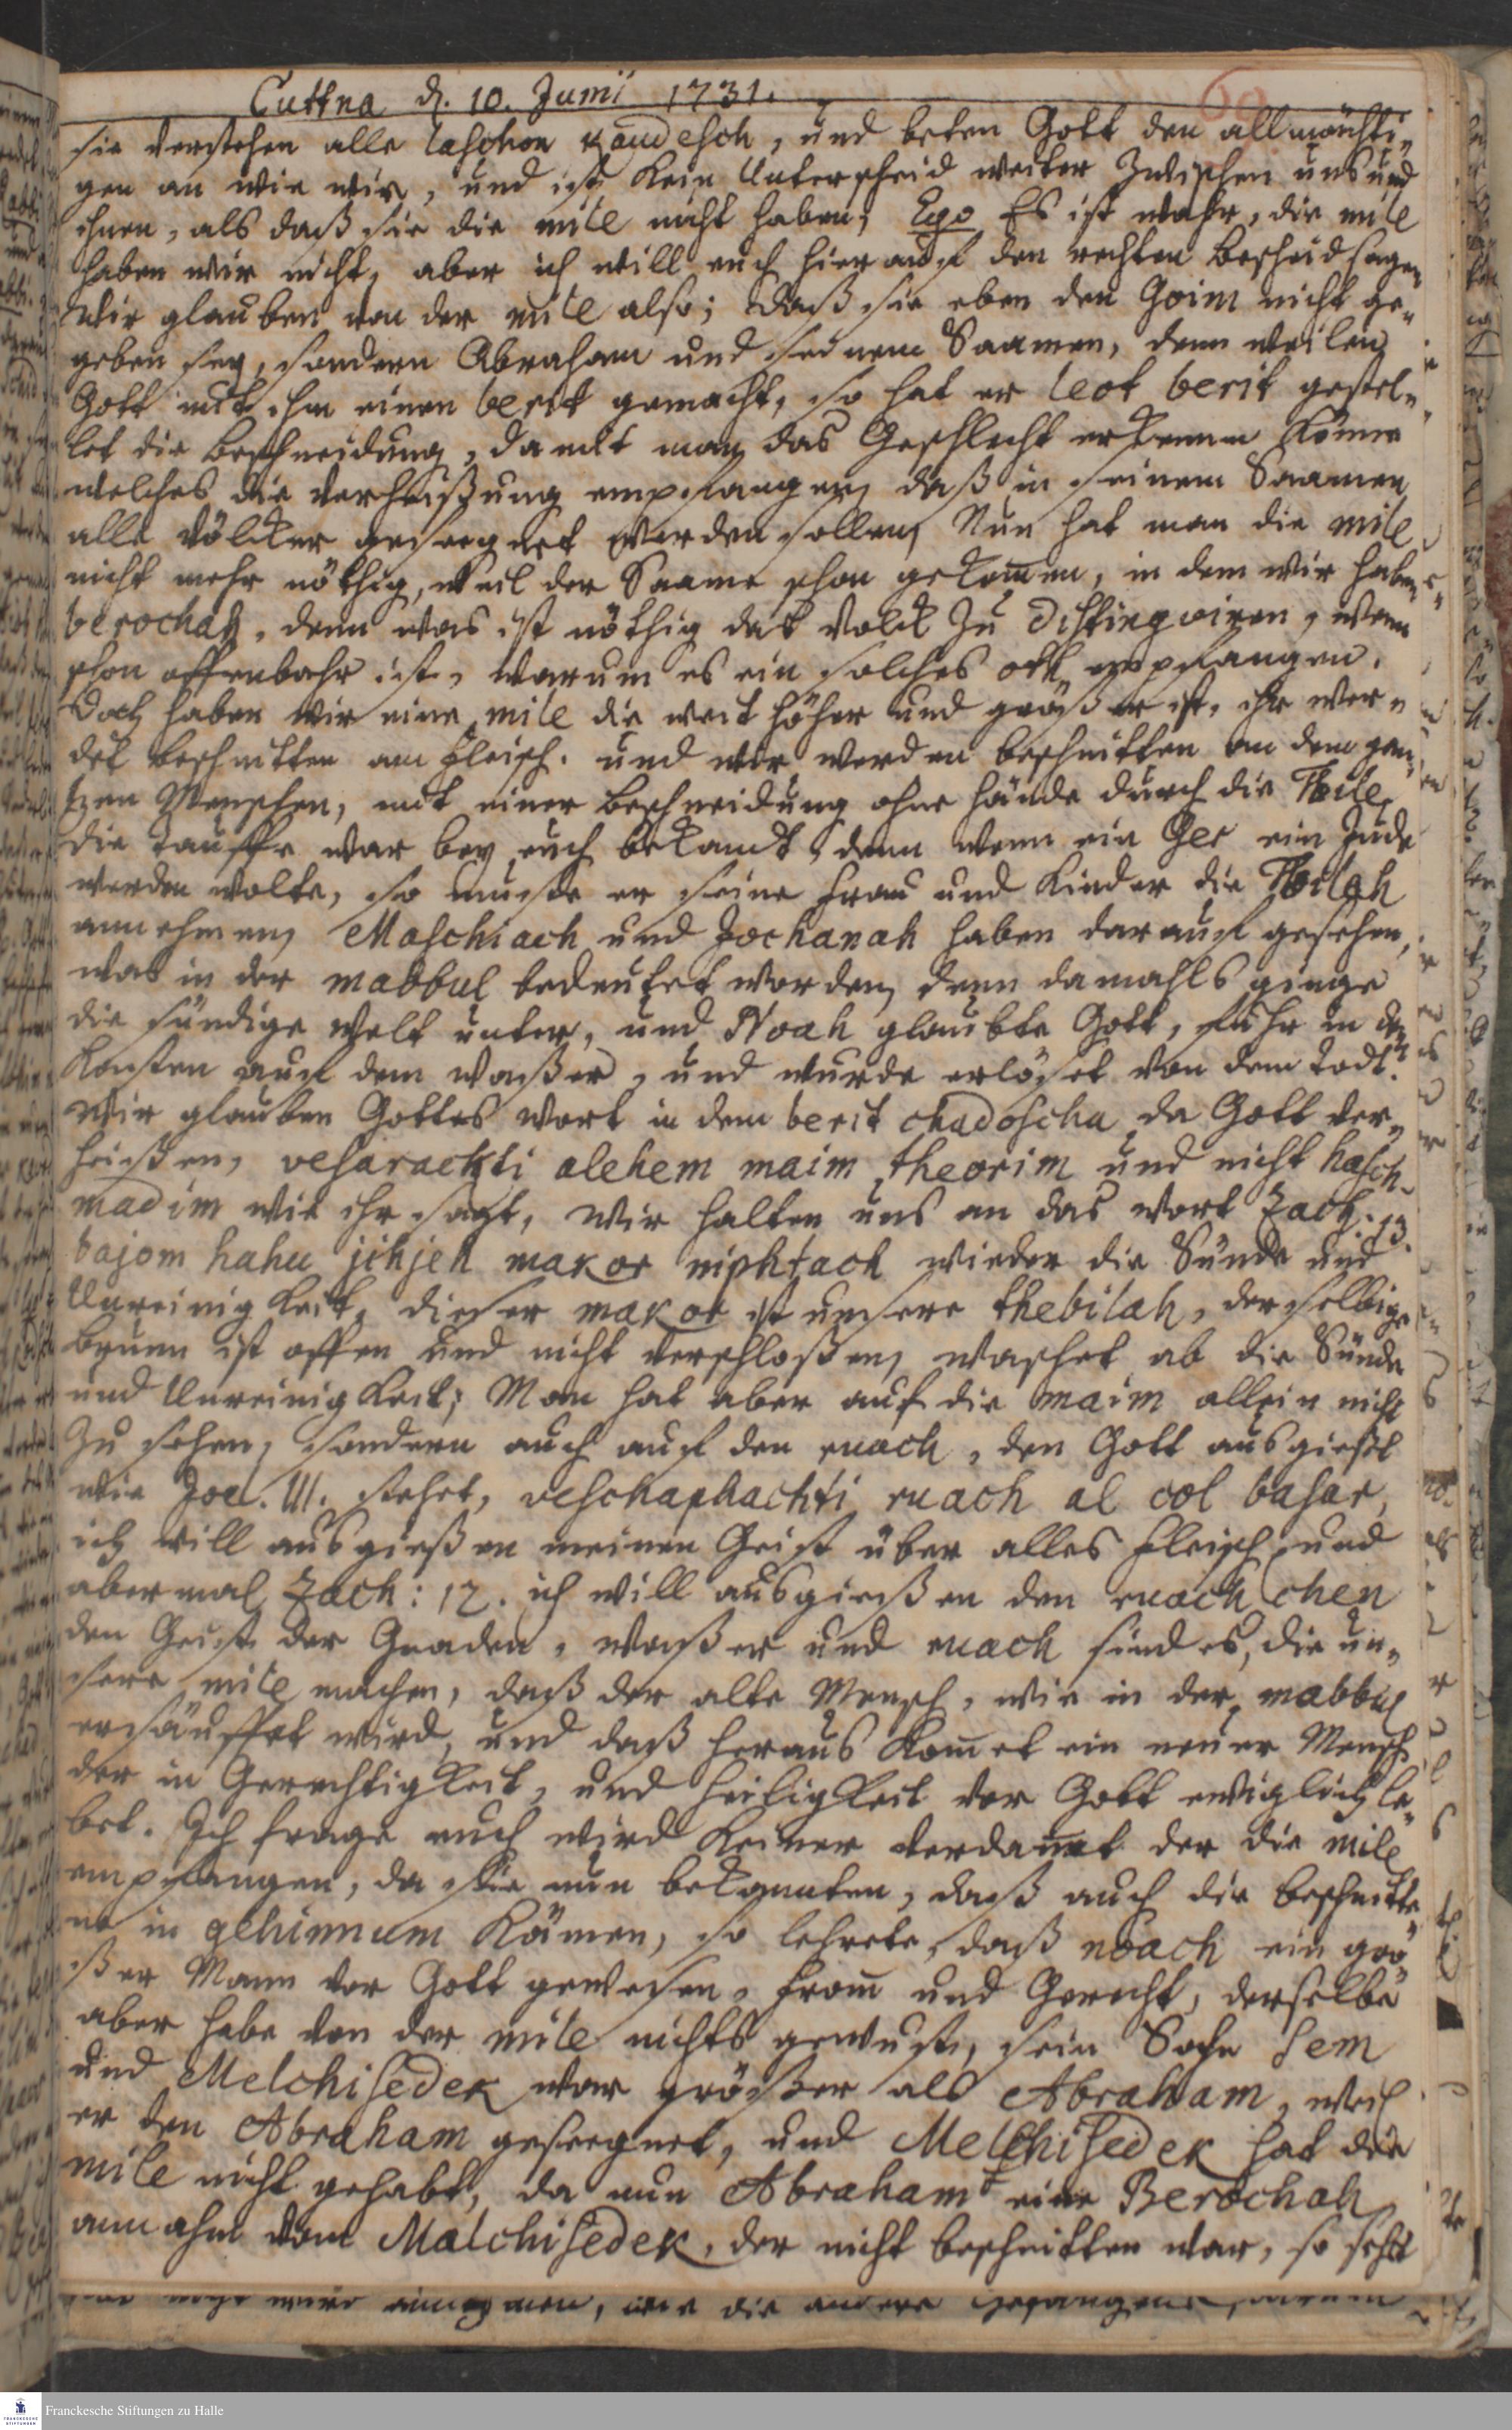 Cuttna d. 10. Junii 1731.
69
sie verstehen alle laschon kaudesch, und beten Gott den allmächti-
gen an wie wir, und ist kein Unterscheid weiter zwischen uns und
ihnen, als daß sie die mile nicht haben; Ego Es ist wahr, die mile
haben wir nicht, aber ich will euch hierauf den rechten Bescheid sagen
Wir glauben von der mile also; daß sie eben den Goim nicht ge-
geben sey, sondern Abraham und seinem Saamen, denn weilen
Gott mit ihm einen berit gemacht, so hat er leot berit gestel-
let die Beschneidung, damit man das Geschlecht erkennen könne
welches die Verheißung empfangen, daß in seinem Saamen
alle Völcker gesegnet werden sollen, Nun hat man die mile
nicht mehr nöthig, weil der Saame schon gekommen, in dem wir haben
berochah, denn was ist nöthig das Volck zu distingviren, wenn
schon offenbahr ist, warum es ein solches oth empfangen.
Doch haben wir eine mile die weit höher und größer ist, ihr wer-
det beschnitten am Fleisch. und wir werden beschnitten an dem gan-
tzen Menschen, mit einer Beschneidung ohne Hände durch die Thile,
die Tauffe war bey euch bekandt, denn wenn ein Ger ein Jude
werden wolte, so muste er seine Frau und Kinder die Thilah
annehmen, Maschiach und Jochanah haben darauf gesehen,
was in der mabbul bedeutet worden, denn damahls ginge
die sündige Welt unter, und Noah glaubte Gott, fuhr in den
Kasten auf dem Waßer, und wurde erlöset von dem Todt.
Wir glauben Gottes Wort in dem berit chadoscha da Gott ver-
heißen, vesarackti alehem maim theorim und nicht hasch-
madim wie ihr sagt, Wir halten uns an das Wort Zach. 13.
bajom hahu jihjeh makor niphtach wieder die Sünde und
Unreinigkeit, dieser makor ist unsere thebilah, derselbige
Brunn ist offen und nicht verschloßen, waschet ab die Sünde
und Unreinigkeit; Man hat aber auf die maim allein nicht
zu sehen, sondern auch auf den ruach, den Gott ausgießt
wie Joel. III. stehet, veschaphachti ruach al col basar,
ich will ausgießen meinen Geist über alles Fleisch und
abermal Zach: 12. ich will ausgießen den ruach chen
den Geist der Gnaden, Waßer und ruach sind es, die un-
sere mile machen, daß der alte Mensch, wie in der mabbul
ersäuffet wird, und daß heraus kommet ein neuer Mensch
der in Gerechtigkeit, und Heiligkeit vor Gott ewiglich le-
bet. Ich frage euch wird keiner verdammt der die mile
empfangen, da sie nun bekannten, daß auch die Beschnitte-
ne in gehinnum kämen, so lehrete, daß noach ein grö-
ßer Mann vor Gott gewesen, fromm und Gerecht, derselbe
aber habe von der mile nichts gewust, sein Sohn Sem
und Melchisedek war größer als Abraham, weil
er den Abraham gesegnet, und Melchisedek hat die
mile nicht gehabt, da nun Abraham eine Berochah
annahm vom Malchisedek, der nicht beschnitten war, so seht
Franckesche Stiftungen zu Halle